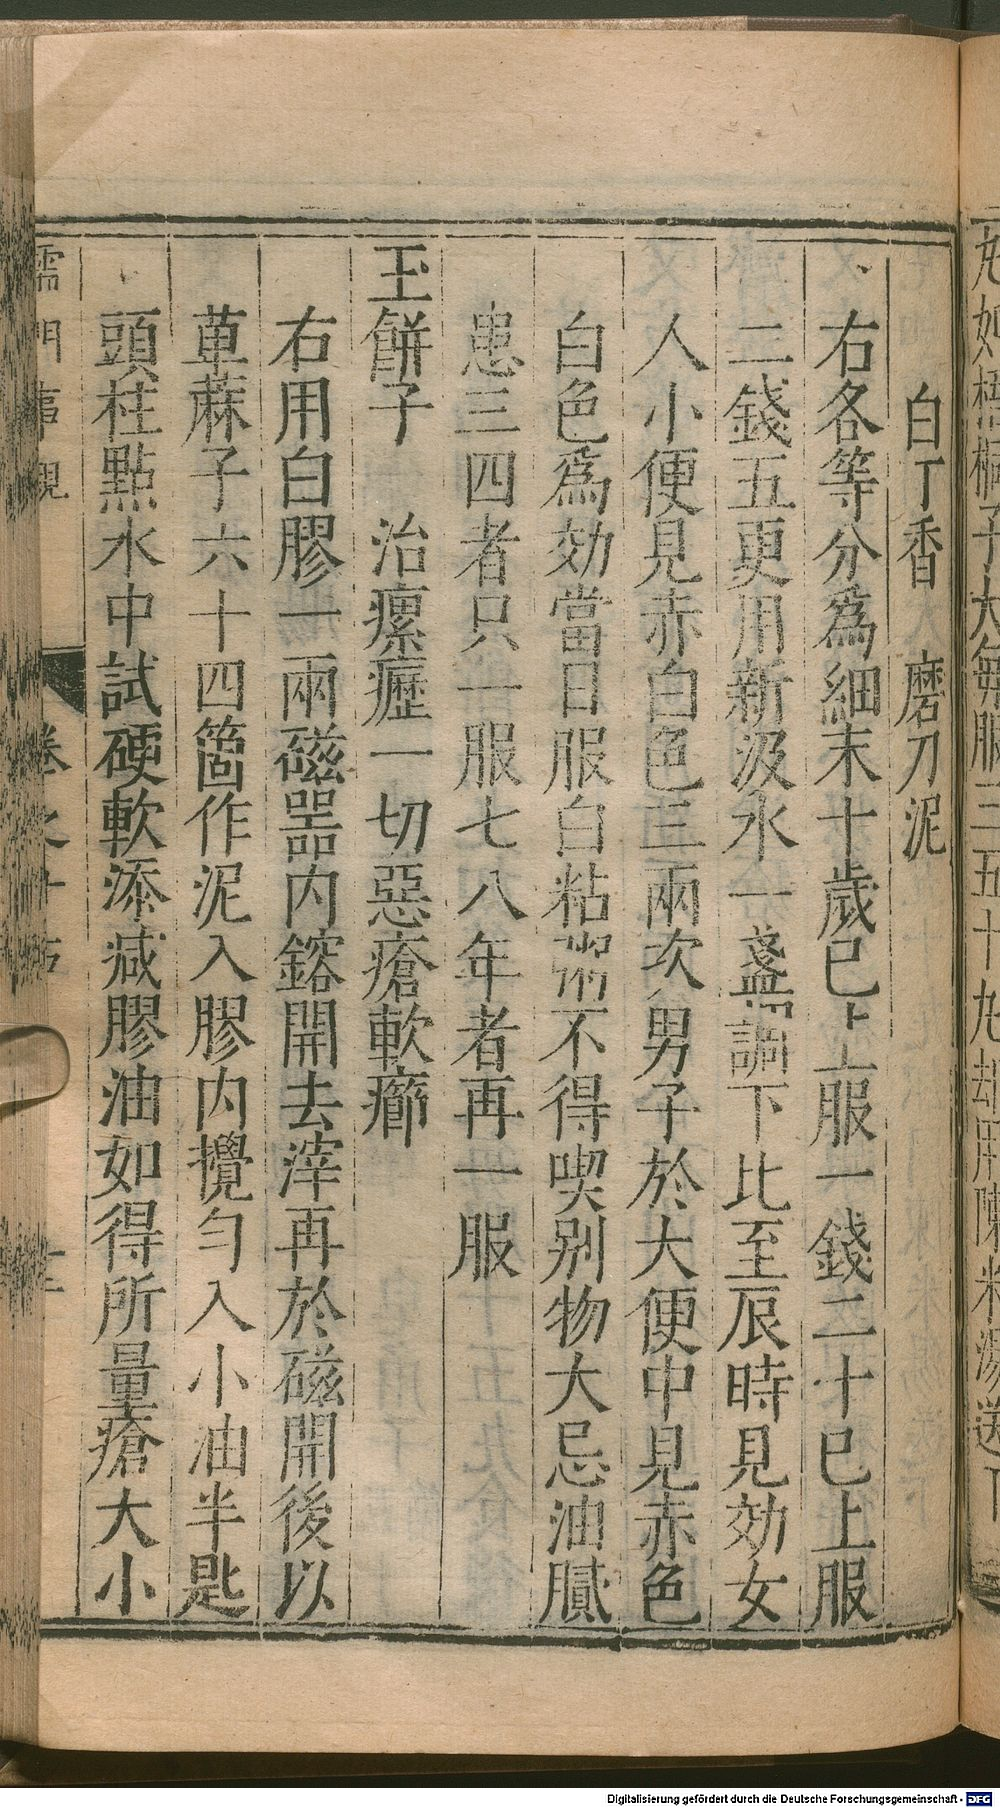 丸如梧桐子大每服三五十丸却用陳米湯送下
白丁香　磨刀泥
右各等分為細末十歲已上服一錢二十已上服
二錢五更用新汲水一盞調下比至辰時見効女
人小便見赤白色三兩次男子於大便中見赤色
白色為効當日服白粘粥不得喫別物大忌油膩
患三四者只一服七八年者再一服
玉餅子　治瘰癧一切惡瘡軟癤
右用白膠一兩磁器內鎔開去滓再於磁開後以
萆蔴子六十四箇作泥入膠內攪勻入小油半匙
頭柱點水中試硬軟添減膠油如得所量瘡大小
儒門事親　卷之十五
Digitalisierung gefördert durch die Deutsche Forschungsgemeinschaft - DFG